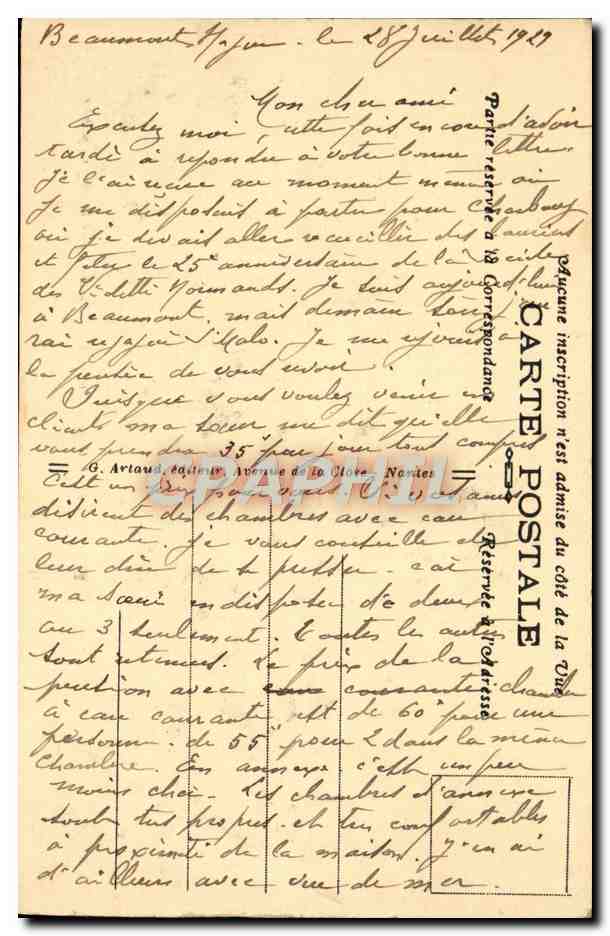 Beaumont le 28 Juillet 1929
Mon cher ami
Excusez moi, cette fois encore d'avoir
tardé à repondre à votre bonne lettre.
Je l'ai reçue au moment même où
Je me disposais à partir pour Cherbourg
où je devais aller recueillir des lauriers
et fêter le 25e anniversaire de la
des Normands. Je suis aujourd'hui
à Beaumont, mais demain
rai St Malo. Je me rejouis à
la pensée de vous revoir.
Puisque vous voulez venir en
clients ma sœur me dit qu'elle
vous prendra 35f par jour tout compris
C'est un prix pour vous. Si vos amis
désirent des chambres avec eau
courante, je vous conseille de
leur dire de se presser. car
ma sœur en dispose de deux
ou 3 seulement. Toutes les autres
sont retenues. Le prix de la
pension avec courante chambre
à eau courante est de 60f pour une
personne. de 55f pour 2 dans la même
chambre. En annexe c'est un peu
moins cher. Les chambres d'annexe
sont très propres et très confortables
à proximité de la maison. J'en ai
d'ailleurs avec vue de mer.
G. Artaud, éditeur, Avenue de la Close, Nantes
CPAPHIL
Aucune inscription n'est admise du côté de la Vue
CARTE POSTALE
Partie réservée à la Correspondance
Réservée à l'Adresse